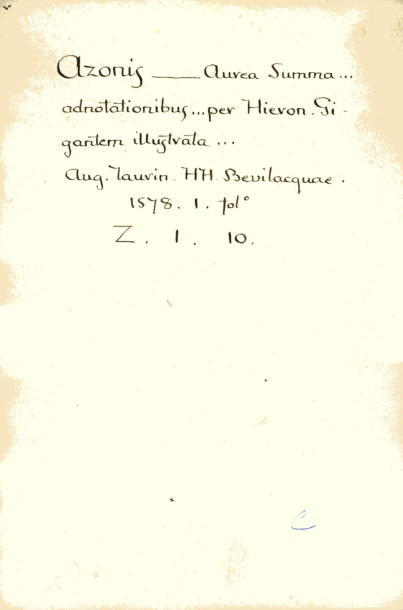 Azonis — Aurea Summa...
adnotationibus... per Hieron. Gi-
gantem illustrata ...
Aug. Taurin. HH. Bevilacquae.
1578. 1. fol°
Z. 1. 10.
C